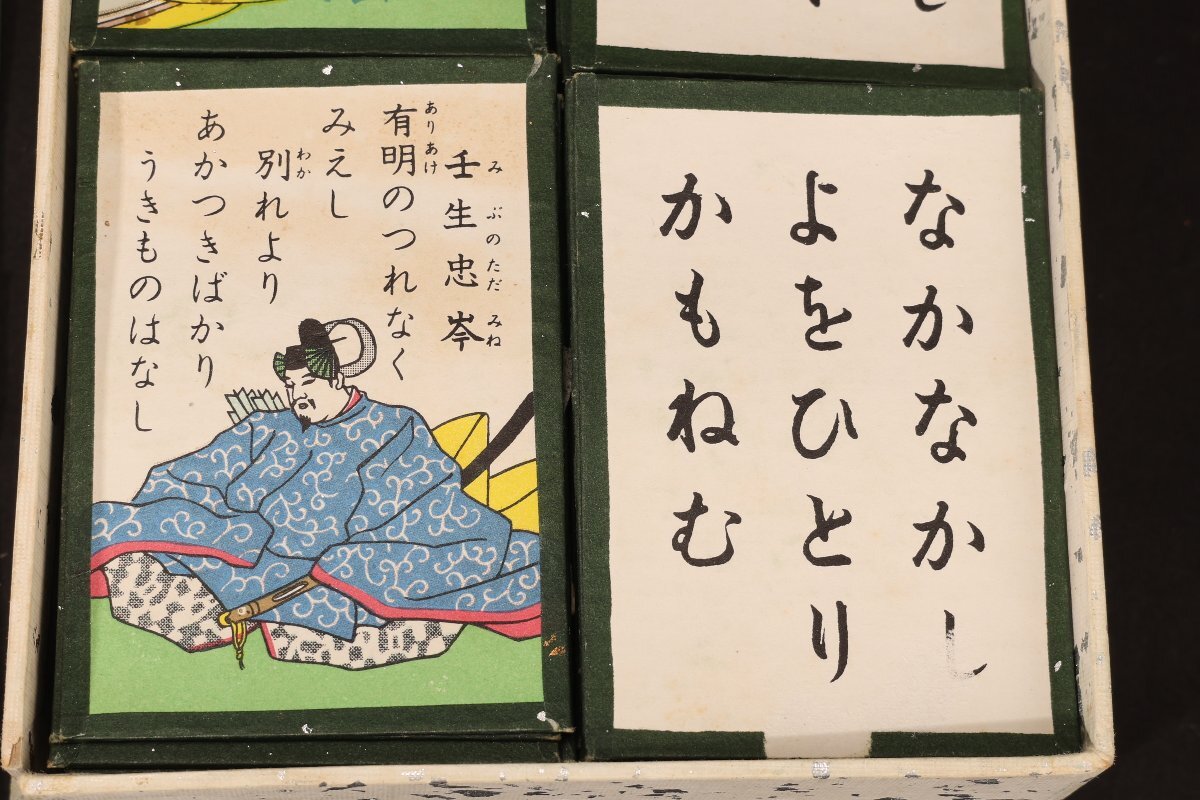 壬生忠岑
みぶのただみね
有明のつれなく
ありあけ
みえし
別れより
わか
あかつきばかり
うきものはなし
なかなかし
よをひとり
かもねむ